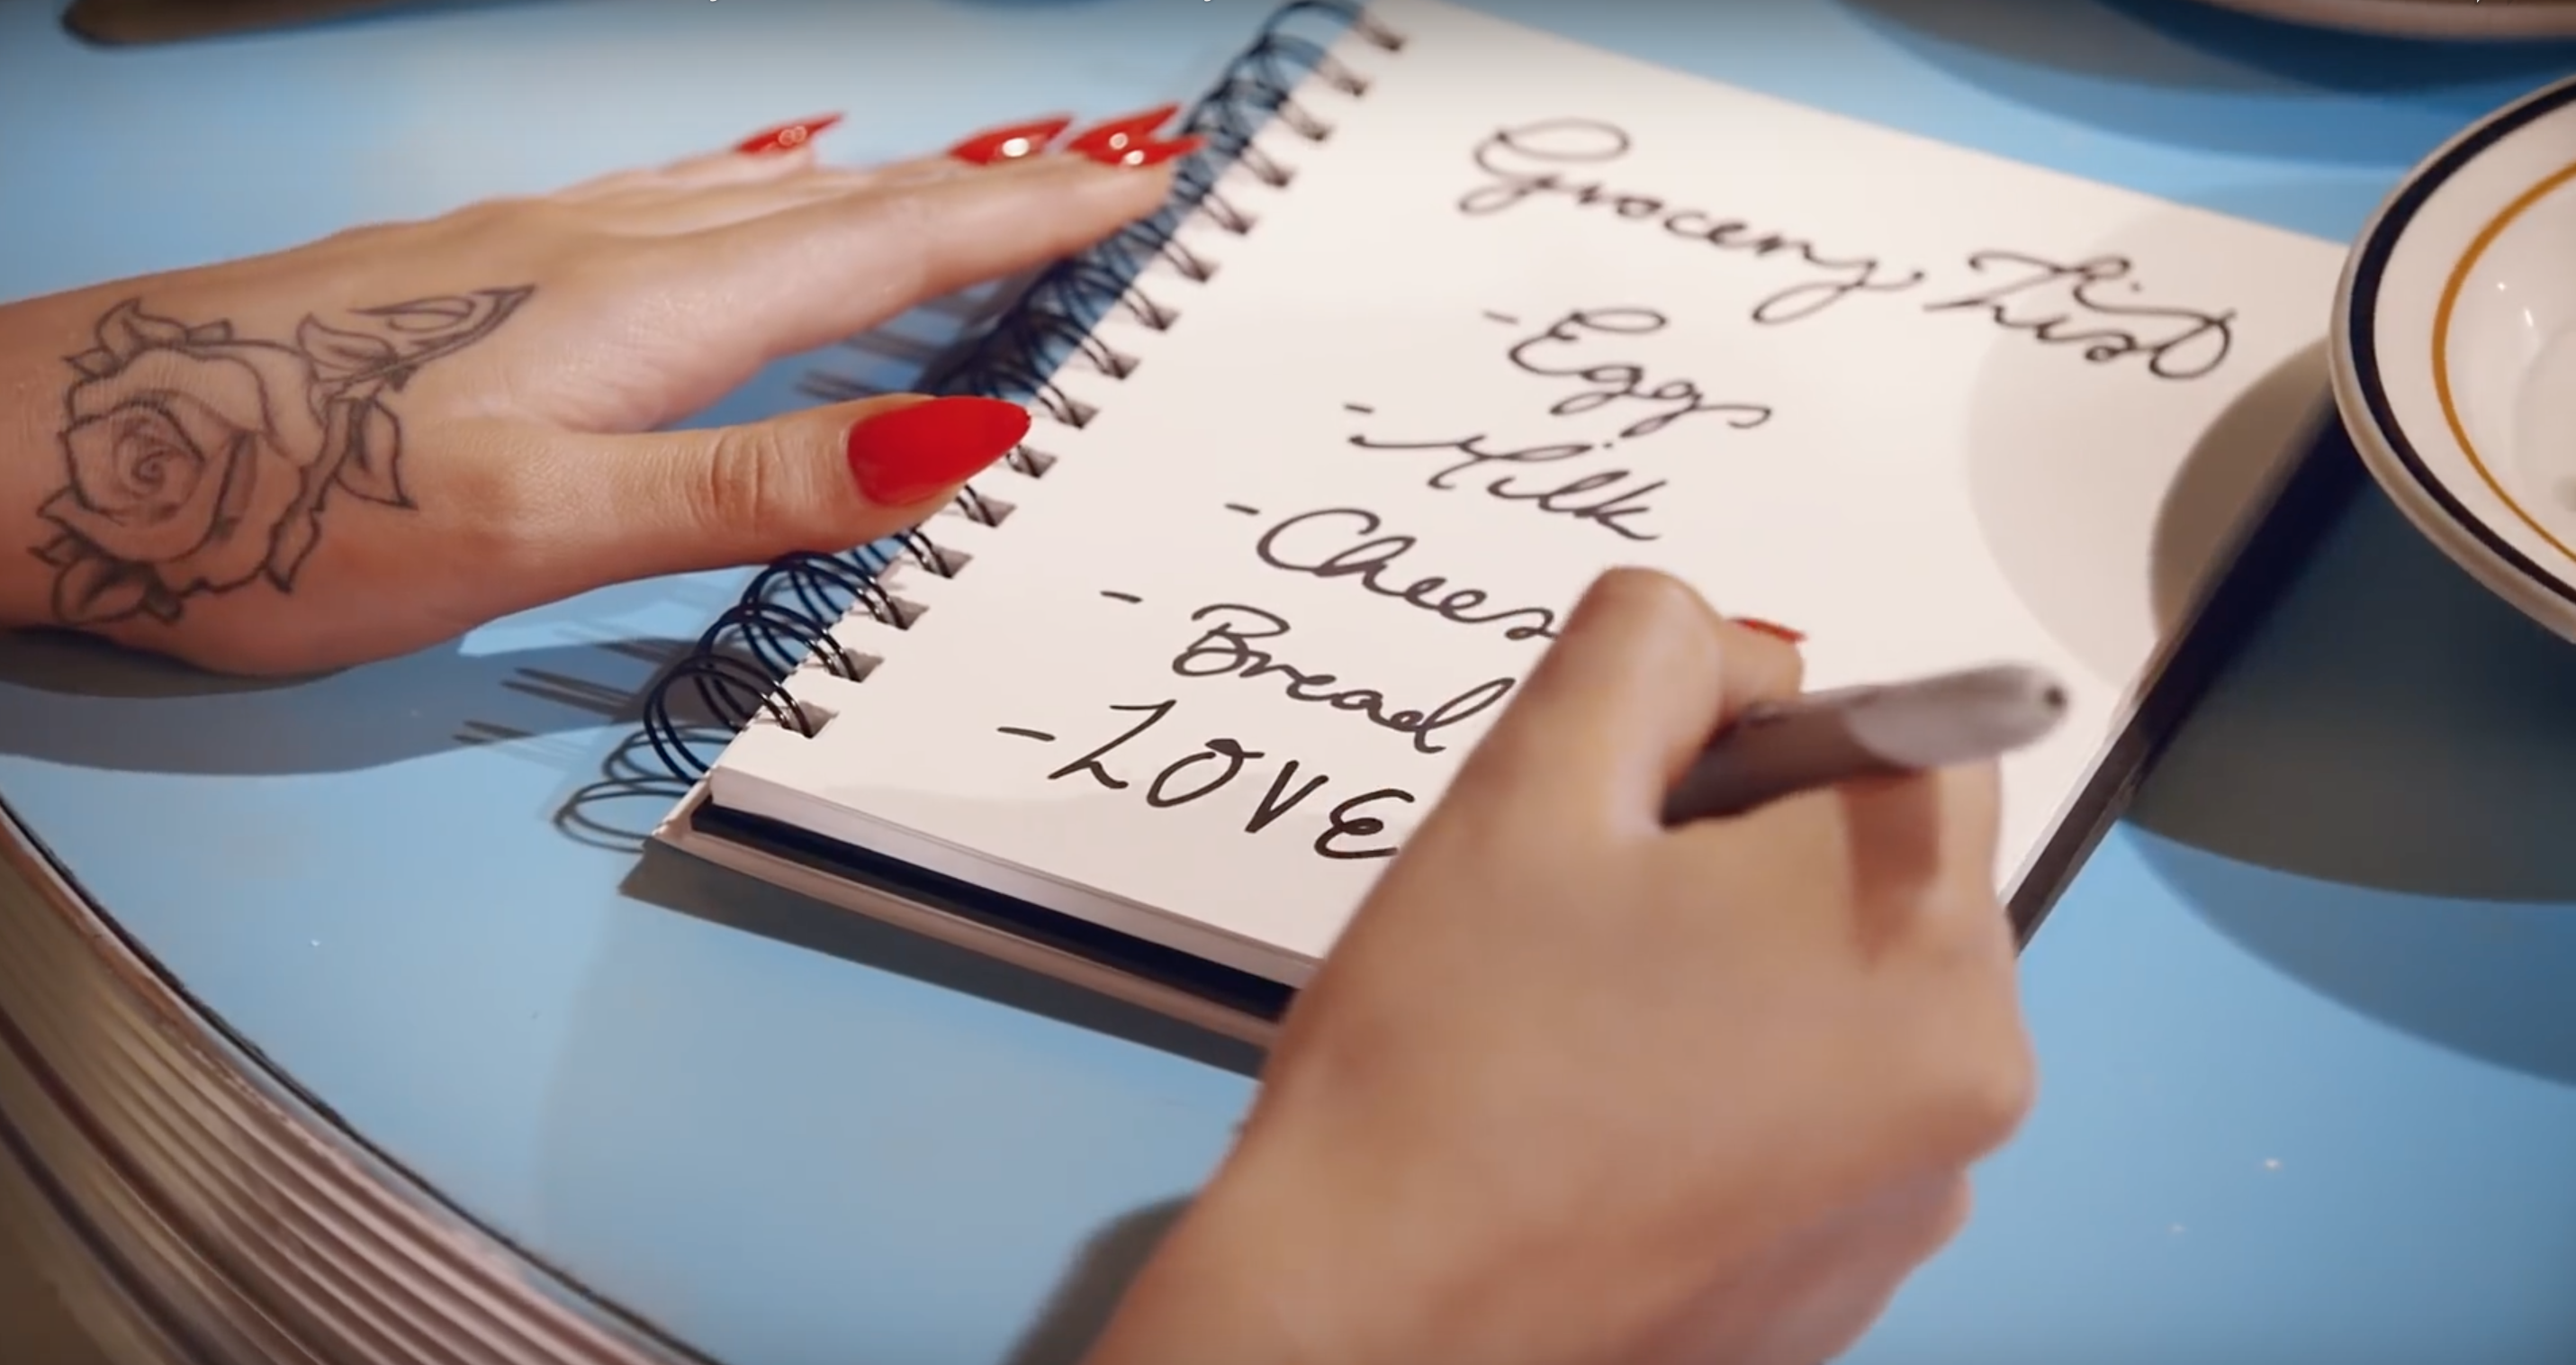 Grocery List
- Eggs
- Milk
- Cheese
- Bread
- LOVE